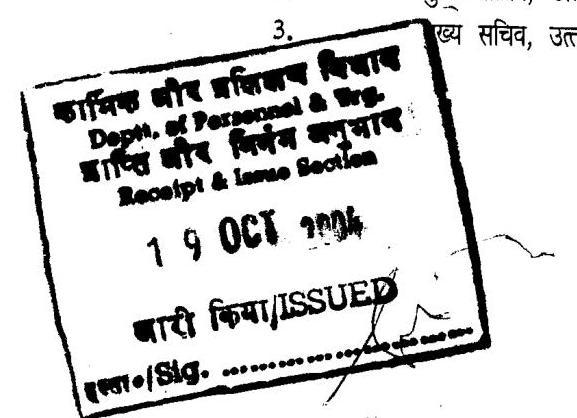 3.
ख्य सचिव, उत्त
कार्मिक और प्रशिक्षण विभाग
Deptt. of Personnel & Trg.
प्राप्ति और निर्गम अनुभाग
Receipt & Issue Section
19 OCT 2004
जारी किया/ISSUED
हस्ता०/Sig. ........................